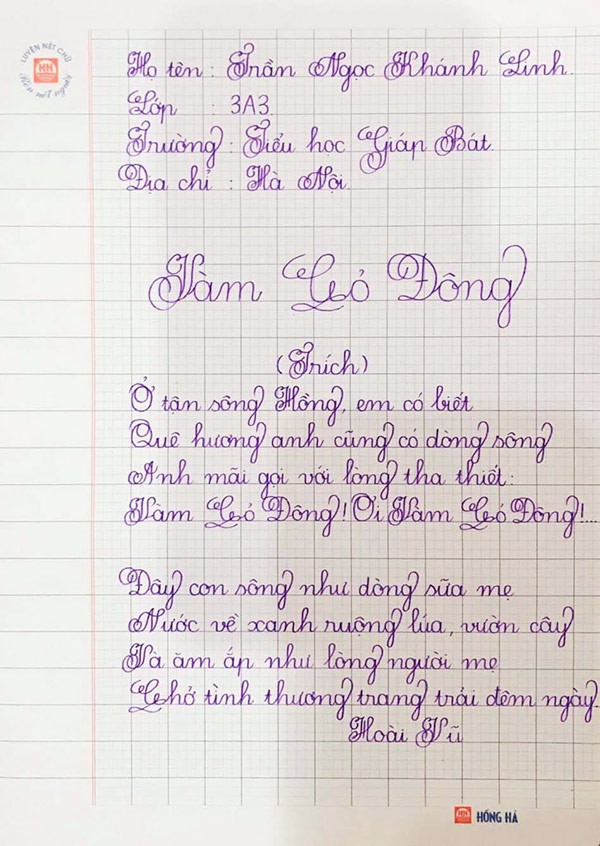 LUYỆN NÉT CHỮ
Rèn nết người
Họ tên : Trần Ngọc Khánh Linh.
Lớp : 3A3
Trường : Tiểu học Giáp Bát.
Địa chỉ : Hà Nội.
Vàm Cỏ Đông
(Trích)
Ở tận sông Hồng, em có biết
Quê hương anh cũng có dòng sông
Anh mãi gọi với lòng tha thiết:
Vàm Cỏ Đông! Ơi Vàm Cỏ Đông!...
Đây con sông như dòng sữa mẹ
Nước về xanh ruộng lúa, vườn cây
Và ăm ắp như lòng người mẹ
Chở tình thương trang trải đêm ngày.
Hoài Vũ
HỒNG HÀ